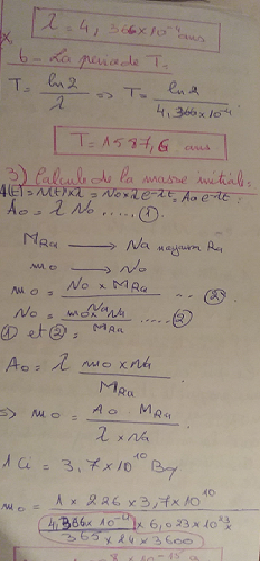 λ = 4,366×10⁻⁴ ans
b - La periode T =
T = ln2 / λ ⇒ T = ln2 / 4,366×10⁻⁴
T = 1587,6 ans
3) Calcule de la masse initiale =
A(t) = N(t)×λ = N₀×λe^-λt = A₀e^-λt :
A₀ = λ N₀ ..... ①.
M_Ra → Na noyaux Ra
m₀ → N₀
m₀ = N₀ × M_Ra / Na .. ②.
N₀ = m₀×Na / M_Ra ..... ②
① et ② =
A₀ = λ m₀×Na / M_Ra
⇒ m₀ = A₀ · M_Ra / λ × Na
1 Ci = 3,7×10¹⁰ Bq
m₀ = 1 × 226 × 3,7×10¹⁰ / 4,366×10⁻⁴ × 6,023×10²³
365 × 24 × 3600